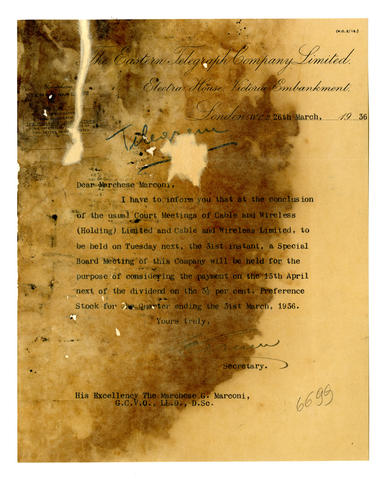 The Eastern Telegraph Company, Limited.
Electra House, Victoria Embankment,
London, W.C.2 26th March, 1936
Telegram
Dear Marchese Marconi,
I have to inform you that at the conclusion
of the usual Court Meetings of Cable and Wireless
(Holding) Limited and Cable and Wireless Limited, to
be held on Tuesday next, the 31st instant, a Special
Board Meeting of this Company will be held for the
purpose of considering the payment on the 15th April
next of the dividend on the 3½ per cent. Preference
Stock for the Quarter ending the 31st March, 1936.
Yours truly,
Secretary.
His Excellency The Marchese G. Marconi,
G.C.V.O., LL.D., D.Sc.
6699